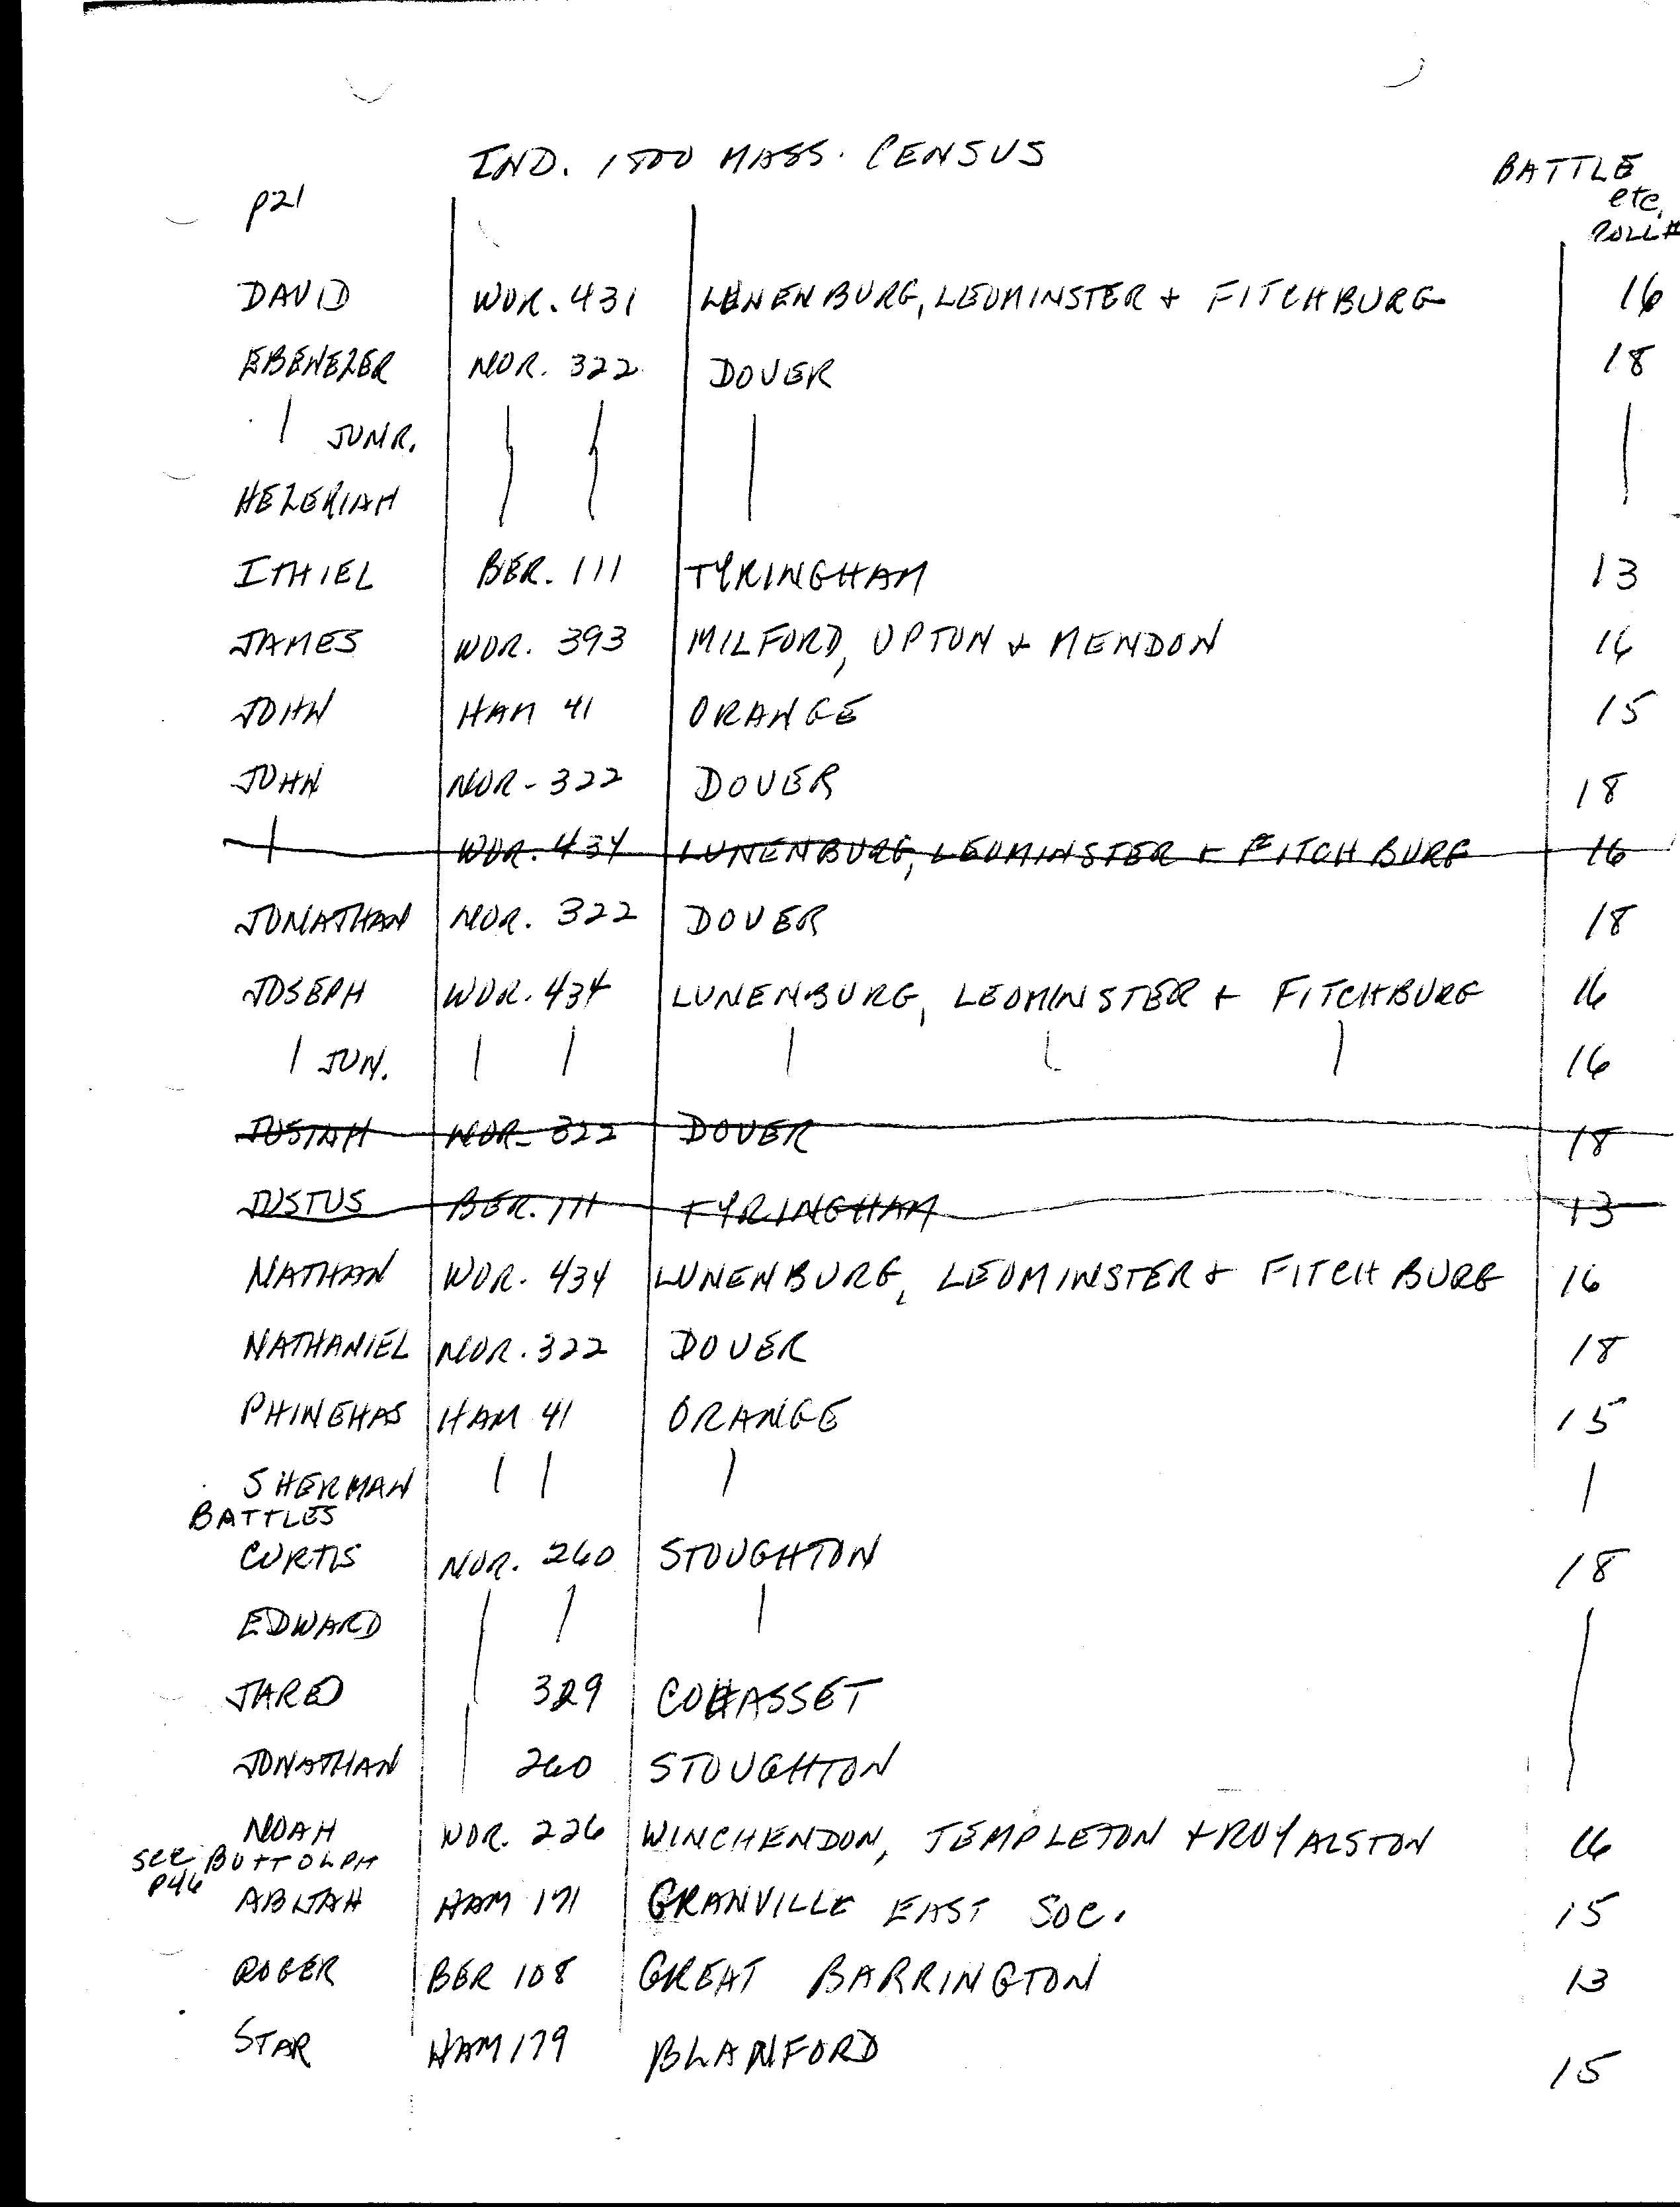 IND. 1800 MASS. CENSUS
BATTLE
etc.
ROLL #
p21
DAVID WOR. 431 LUNENBURG, LEOMINSTER + FITCHBURG 16
EBENEZER NOR. 322 DOVER 18
| JUNR. | | | |
HEZEKIAH
ITHIEL BER. 111 TYRINGHAM 13
JAMES WOR. 393 MILFORD, UPTON + MENDON 16
JOHN HAM 41 ORANGE 15
JOHN NOR - 322 DOVER 18
| WOR. 434 LUNENBURG, LEOMINSTER + FITCHBURG 16
JONATHAN NOR. 322 DOVER 18
JOSEPH WOR. 434 LUNENBURG, LEOMINSTER + FITCHBURG 16
| JUN. | | | | | 16
JOSIAH NOR - 322 DOVER 18
JUSTUS BER. 111 TYRINGHAM 13
NATHAN WOR. 434 LUNENBURG, LEOMINSTER + FITCHBURG 16
NATHANIEL NOR. 322 DOVER 18
PHINEHAS HAM 41 ORANGE 15
SHERMAN | | | |
BATTLES
CURTIS NOR. 260 STOUGHTON 18
EDWARD | | | |
JARED 329 COHASSET
JONATHAN | 260 STOUGHTON
NOAH WOR. 226 WINCHENDON, TEMPLETON + ROYALSTON 16
see BUTTOLPH
P46
ABIJAH HAM 171 GRANVILLE EAST SOC. 15
ROGER BER 108 GREAT BARRINGTON 13
STAR HAM 179 BLANFORD 15